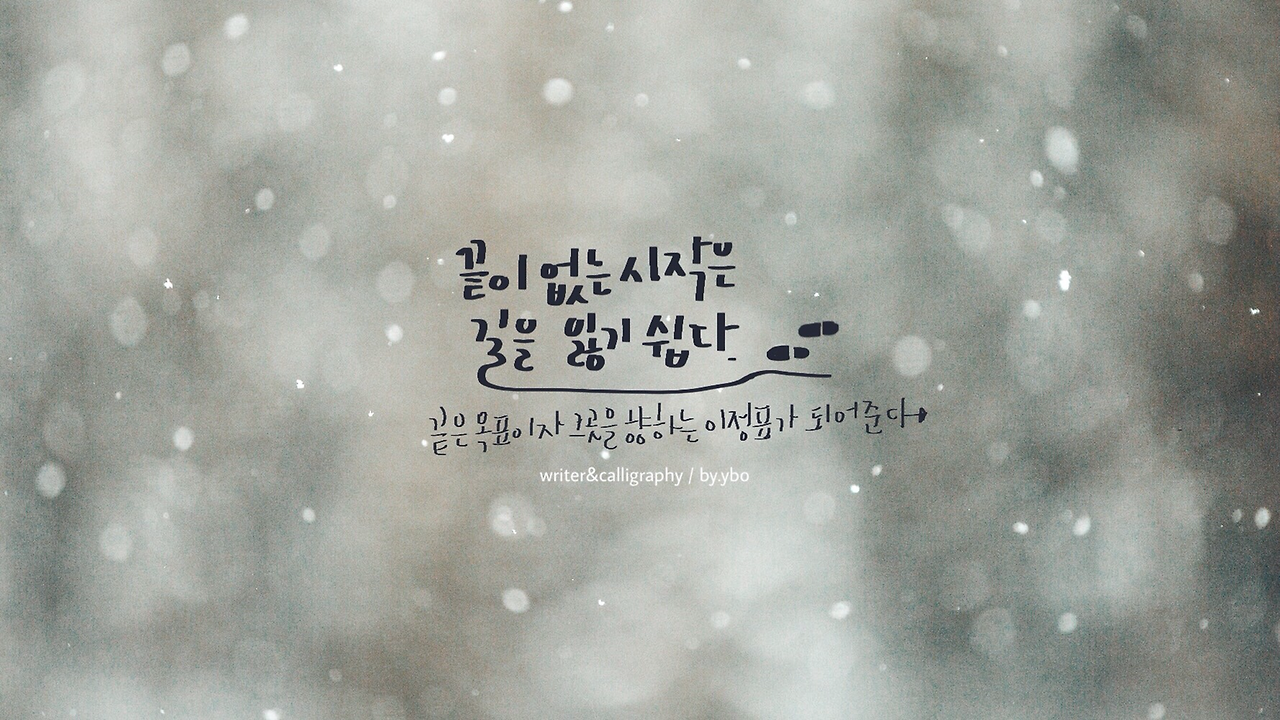 끝이 없는 시작은
길을 잃기 쉽다.
끝은 목표이자 그곳을 향하는 이정표가 되어준다
writer&calligraphy / by.ybo